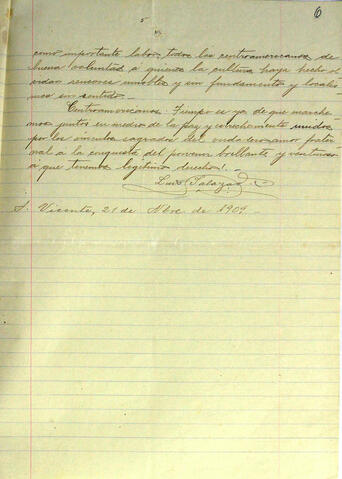 5
6
como importante labor, todos los centroamericanos de
buena voluntad á quienes la cultura haya hecho ol-
vidar rencores innobles y sin fundamento y localis-
mos sin sentido.
Centroamericanos: Tiempo es ya de que marche-
mos juntos en medio de la paz y estrechamente unidos
por los vínculos sagrados del verdadero amor frater-
nal a la conquista del porvenir brillante y venturoso
á que tenemos legítimo derecho!
Luis Salazar
S. Vicente, 21 de Nbre. de 1909.